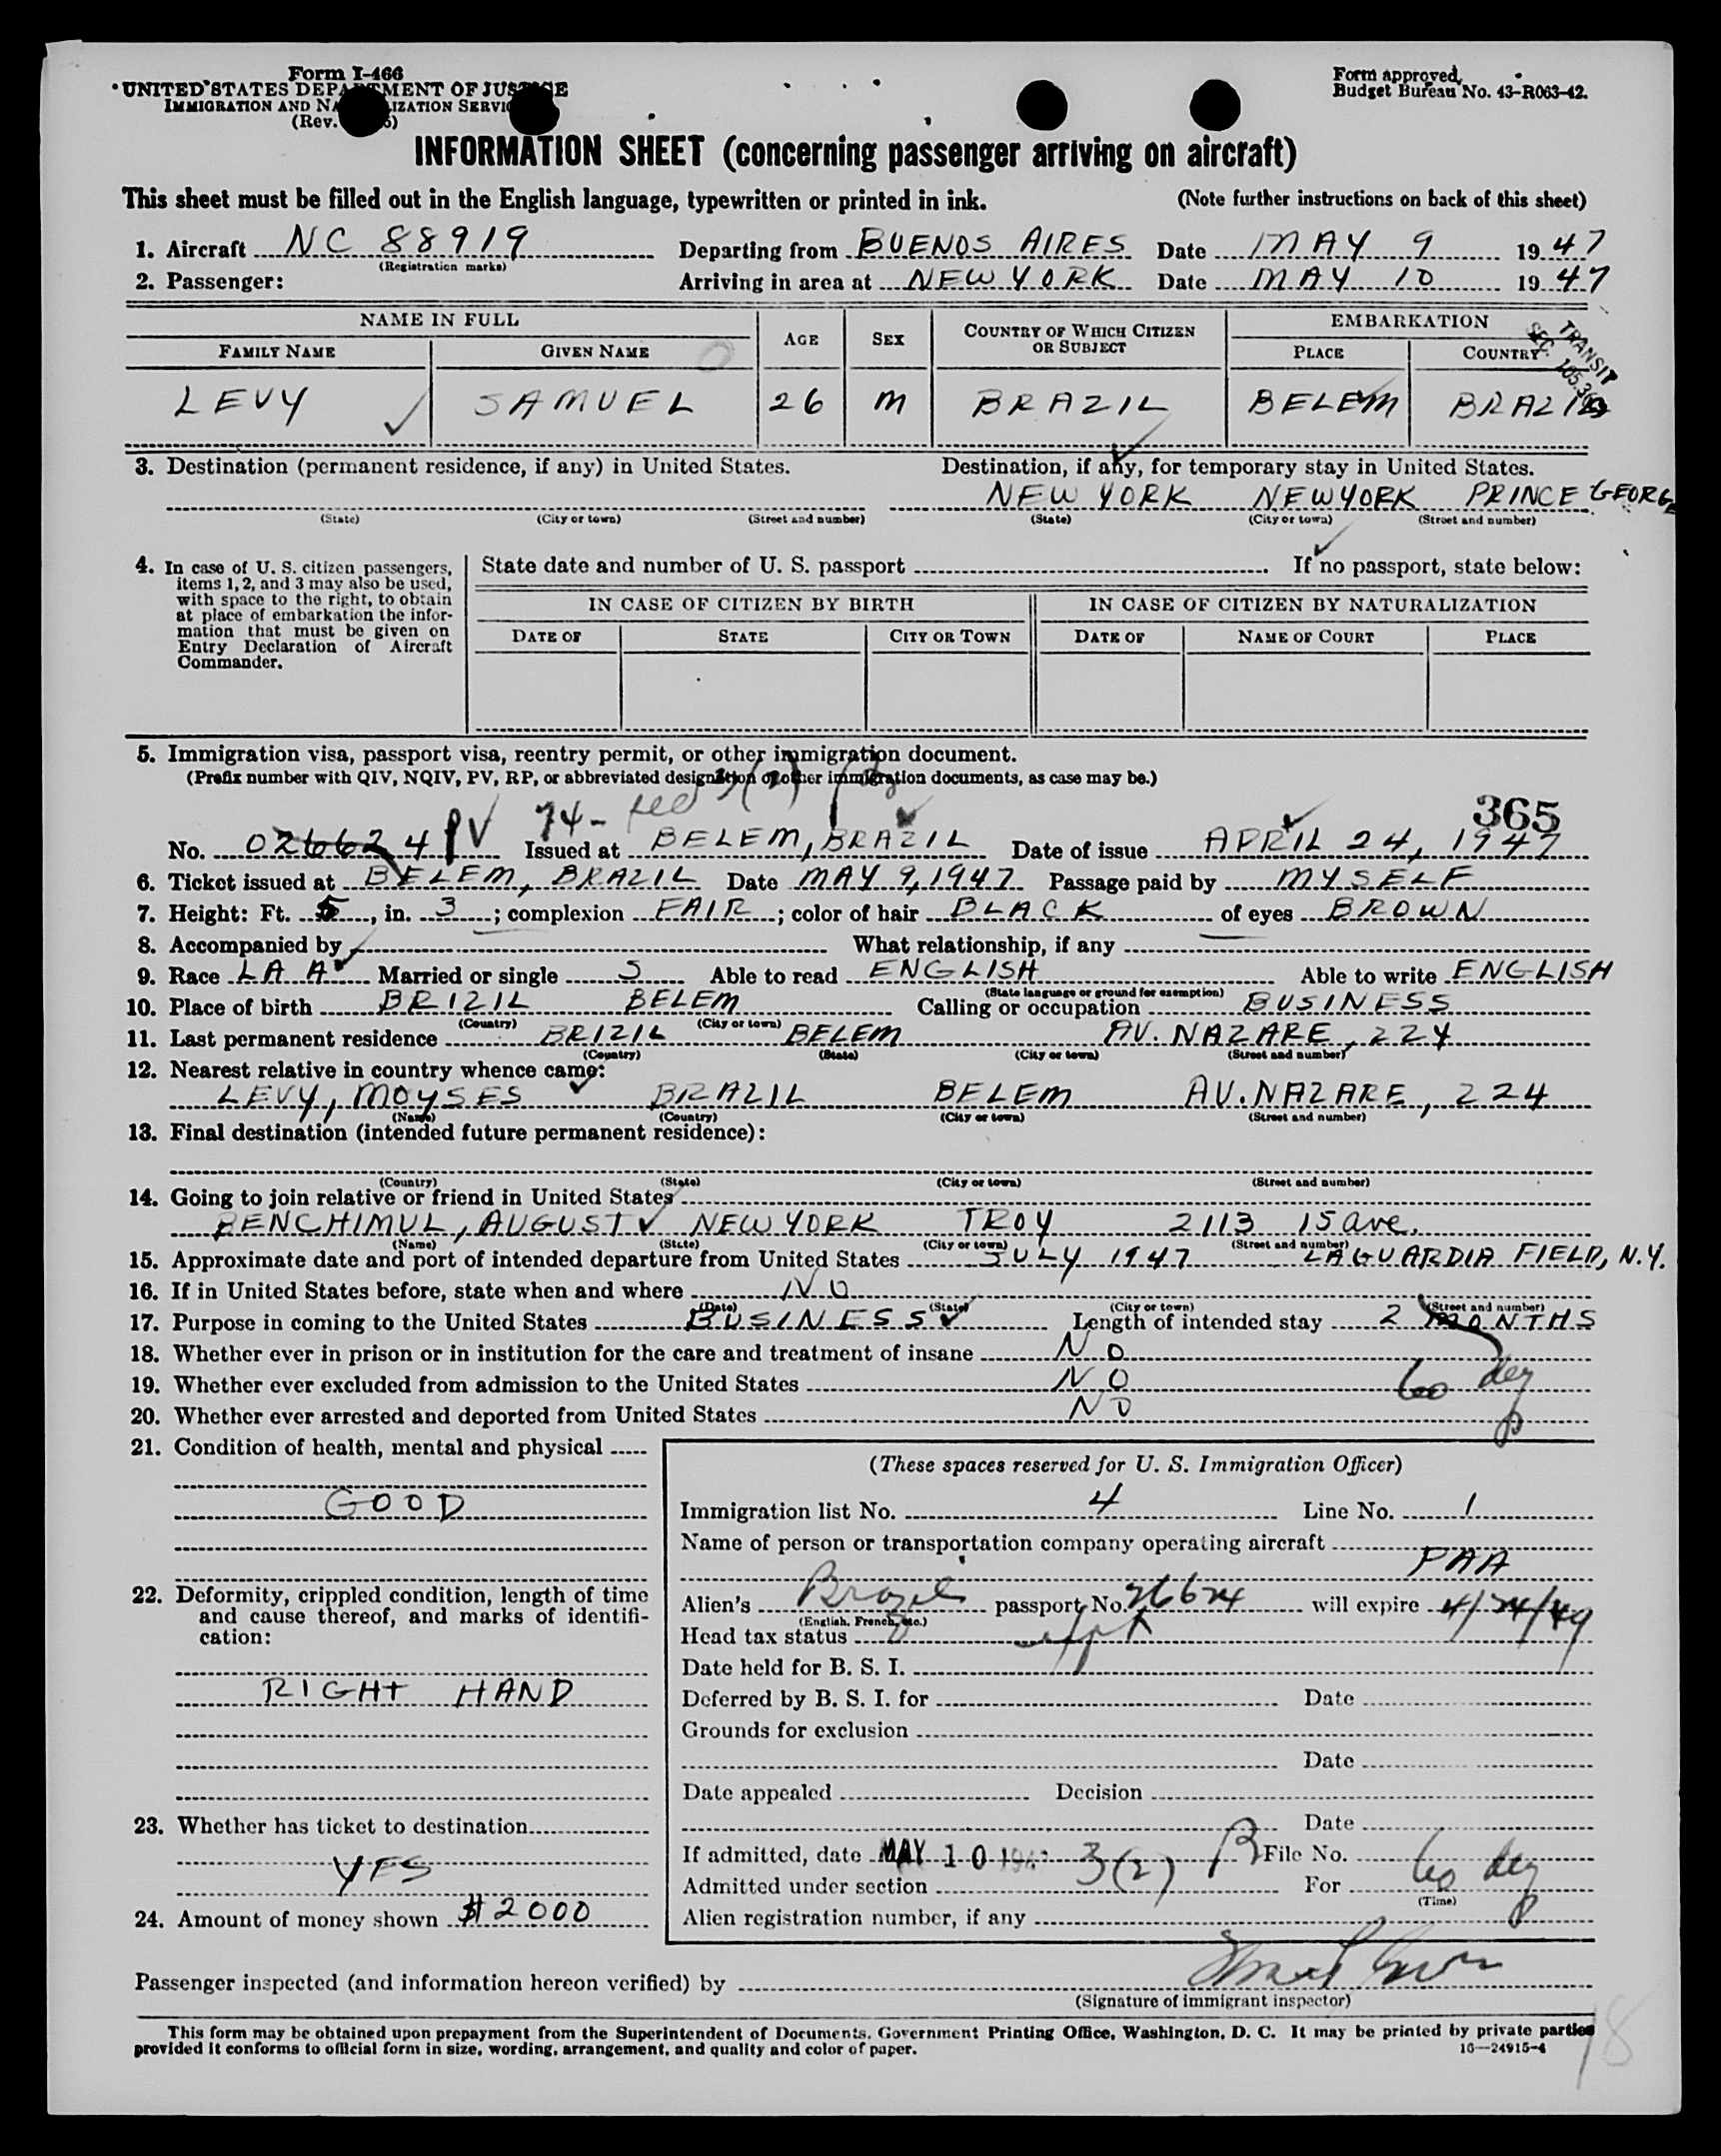 Form I-466
UNITED STATES DEPARTMENT OF JUSTICE
IMMIGRATION AND NATURALIZATION SERVICE
(Rev.
Form approved.
Budget Bureau No. 43-R063-42.
INFORMATION SHEET (concerning passenger arriving on aircraft)
This sheet must be filled out in the English language, typewritten or printed in ink. (Note further instructions on back of this sheet)
1. Aircraft NC 88919 Departing from BUENOS AIRES Date MAY 9 1947
(Registration marks)
2. Passenger: Arriving in area at NEW YORK Date MAY 10 1947
NAME IN FULL AGE SEX COUNTRY OF WHICH CITIZEN OR SUBJECT EMBARKATION
FAMILY NAME GIVEN NAME PLACE COUNTRY
TRANSIT
SEC. 105.3
LEVY SAMUEL 26 M BRAZIL BELEM BRAZIL
3. Destination (permanent residence, if any) in United States. Destination, if any, for temporary stay in United States.
NEW YORK NEW YORK PRINCE GEORGE
(State) (City or town) (Street and number) (State) (City or town) (Street and number)
4. In case of U. S. citizen passengers, items 1, 2, and 3 may also be used, with space to the right, to obtain at place of embarkation the information that must be given on Entry Declaration of Aircraft Commander.
State date and number of U. S. passport If no passport, state below:
IN CASE OF CITIZEN BY BIRTH IN CASE OF CITIZEN BY NATURALIZATION
DATE OF STATE CITY OR TOWN DATE OF NAME OF COURT PLACE
5. Immigration visa, passport visa, reentry permit, or other immigration document.
(Prefix number with QIV, NQIV, PV, RP, or abbreviated designation of other immigration documents, as case may be.)
365
No. 026624 PV 74- Issued at BELEM, BRAZIL Date of issue APRIL 24, 1947
6. Ticket issued at BELEM, BRAZIL Date MAY 9, 1947 Passage paid by MYSELF
7. Height: Ft. 5, in. 3; complexion FAIR; color of hair BLACK of eyes BROWN
8. Accompanied by What relationship, if any
9. Race LA A Married or single S Able to read ENGLISH Able to write ENGLISH
(State language or ground for exemption)
10. Place of birth BRIZIL BELEM Calling or occupation BUSINESS
(Country) (City or town)
11. Last permanent residence BRIZIL BELEM AV. NAZARE, 224
(Country) (State) (City or town) (Street and number)
12. Nearest relative in country whence came:
LEVY, MOYSES BRAZIL BELEM AV. NAZARE, 224
(Name) (Country) (City or town) (Street and number)
13. Final destination (intended future permanent residence):
(Country) (State) (City or town) (Street and number)
14. Going to join relative or friend in United States
BENCHIMUL, AUGUST NEW YORK TROY 2113 15 ave.
(Name) (State) (City or town) (Street and number)
15. Approximate date and port of intended departure from United States JULY 1947 LAGUARDIA FIELD, N.Y.
16. If in United States before, state when and where NO
(Date) (State) (City or town) (Street and number)
17. Purpose in coming to the United States BUSINESS Length of intended stay 2 MONTHS
18. Whether ever in prison or in institution for the care and treatment of insane NO
19. Whether ever excluded from admission to the United States NO 60 dey
20. Whether ever arrested and deported from United States NO
21. Condition of health, mental and physical
GOOD
22. Deformity, crippled condition, length of time and cause thereof, and marks of identification:
RIGHT HAND
23. Whether has ticket to destination
YES
24. Amount of money shown $2000
(These spaces reserved for U. S. Immigration Officer)
Immigration list No. 4 Line No. 1
Name of person or transportation company operating aircraft
PAA
Alien's Brazil passport No. 26624 will expire 4/24/49
(English, French, etc.)
Head tax status
Date held for B. S. I.
Deferred by B. S. I. for Date
Grounds for exclusion
Date
Date appealed Decision
Date
If admitted, date MAY 10 194 3(2) File No.
Admitted under section For 60 dey
(Time)
Alien registration number, if any
Passenger inspected (and information hereon verified) by
(Signature of immigrant inspector)
This form may be obtained upon prepayment from the Superintendent of Documents, Government Printing Office, Washington, D. C. It may be printed by private parties
provided it conforms to official form in size, wording, arrangement, and quality and color of paper. 16—24915-4